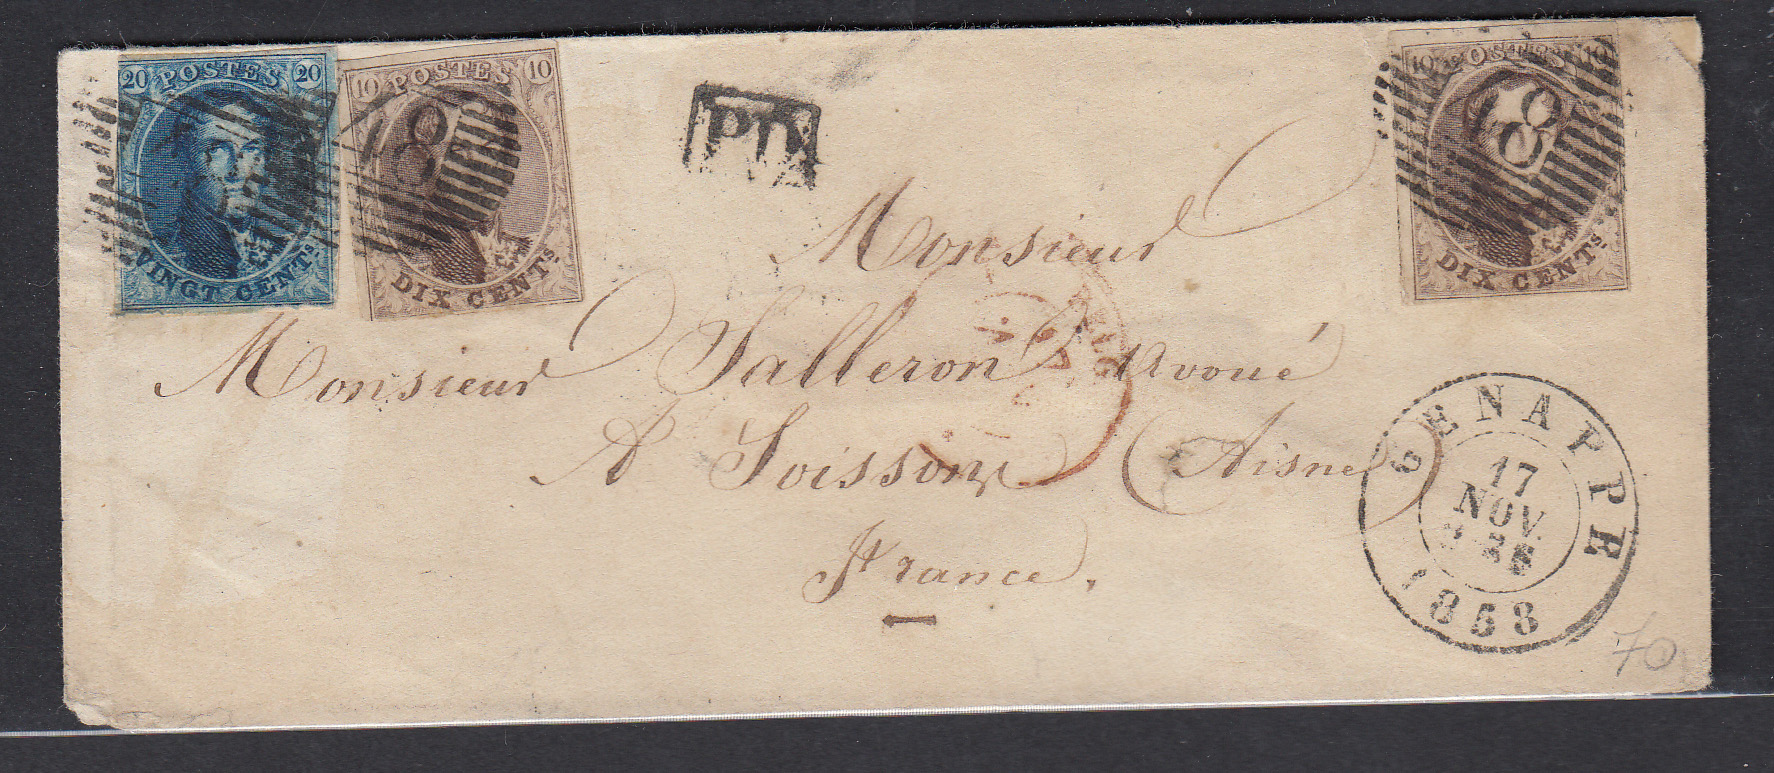 20 POSTES 20
VINGT CENTs
10 POSTES 10
48
DIX CENTs
PD
10 POSTES 10
48
DIX CENTs
Monsieur
Monsieur Salleron, Avoué
A Soissons (Aisne)
France.
1
GENAPPE
17
NOV
1858
70